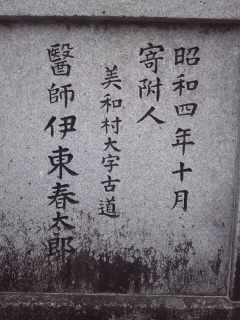 昭和四年十月
寄附人
美和村大字古道
醫師伊東春太郎